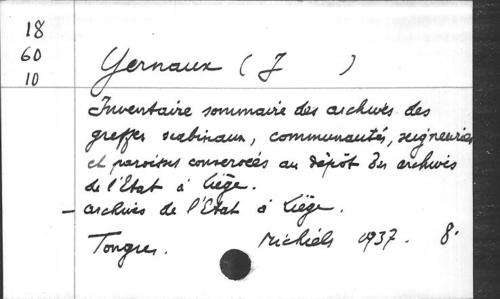 18
60
10
Yernaux (J )
Inventaire sommaire des archives des
greffes scabinaux, communautés, seigneuries
et paroisses conservées au dépôt des archives
de l'Etat à Liège.
- archives de l'Etat à Liège.
Tongres. Michiels 1937. 8°